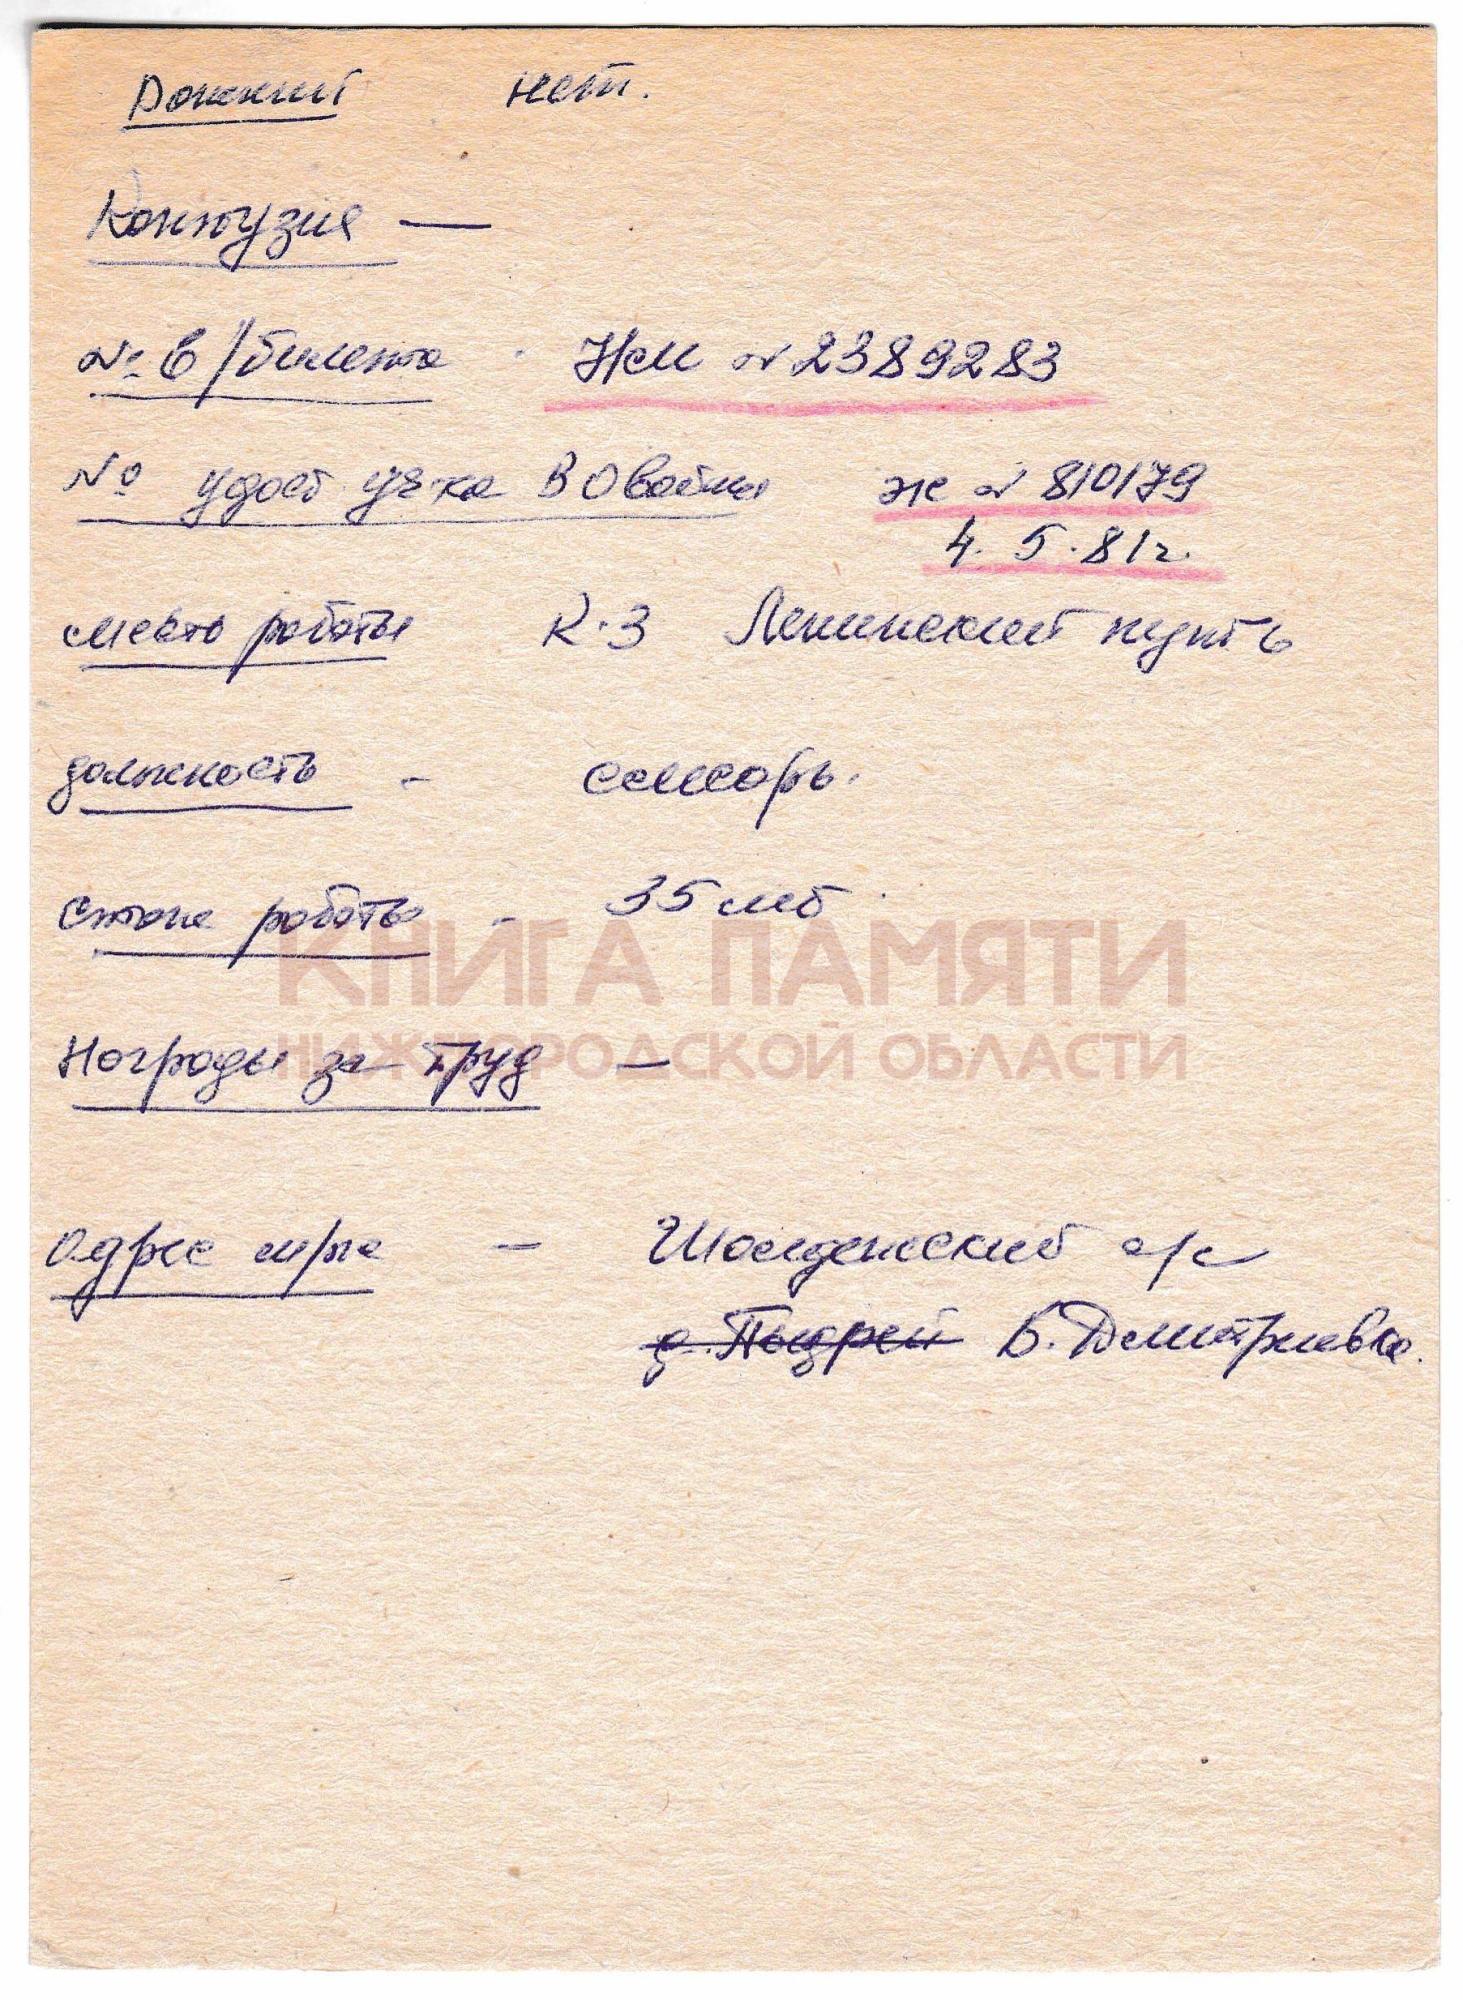 Ранений нет.
Контузия —
№ в/билета НМ № 2389283
№ удост уч-ка В О войны Ж № 810179
4.5.81г.
место работы К-З Ленинский путь
должность - слесарь.
стаж работы - 35 лет
КНИГА ПАМЯТИ
Награды за труд —
НИЖЕГОРОДСКОЙ ОБЛАСТИ
Адрес м/ж — Шолдежский с/с
Б. Дмитриевка.